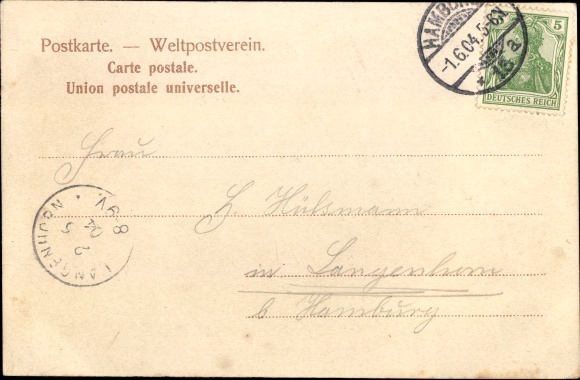 Postkarte. — Weltpostverein.
Carte postale.
Union postale universelle.
HAMBURG
-1.6.04.5-6N
* 15 a
5
DEUTSCHES REICH
Frau
H. Hülsmann
in Langenhorn
b Hamburg
LANGENHORN
2
04
8-9V.